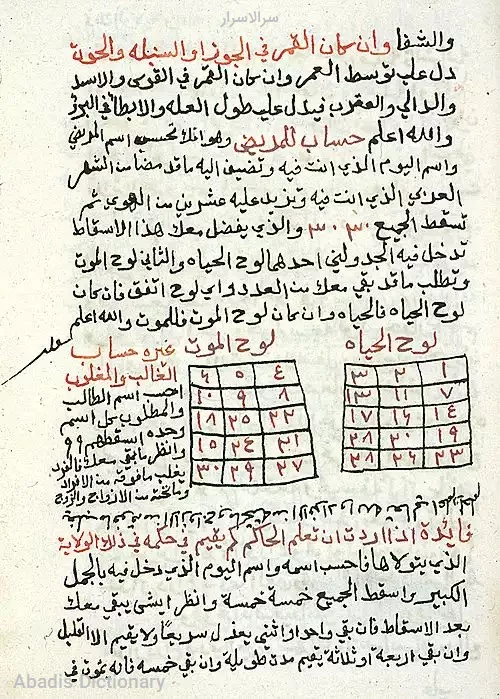 سرالاسرار
والشفا وان كان القمر في الجوزا والسنبله والحوت
دل علي توسط العمر وان كان القمر في القوس والاسد
والدالي والعقرب فيدل علي طول العله والابطا في البرؤ
والله اعلم حساب للمريض وهو انك تحسب اسم المريض
واسم اليوم الذي انت فيه وتضيف اليه ما قد مضا من الشهر
العربي الذي انت فيه وتزيد عليه عشرين من الهوي ثم
تسقط الجميع ٣٠ ٣٠ والذي يفضل معك هذا الاسقاط
تدخل فيه الجدولين احدهما لوح الحياه والثاني لوح الموت
وتطلب ما قد بقي معك من العدد واي لوح اتفق فان كان
لوح الحياه فالحياه وان كان لوح الموت فالموت والله اعلم
لوح الحياه
١ ٢ ٣
٧ ١١ ١٣
١٤ ١٦ ١٧
١٩ ٢٠ ٢٨
٢٣ ٢٦ ٢٨
لوح الموت
٤ ٥ ٦
٨ ٩ ١٠
٢٢ ٢٥ ١٨
٢١ ٢٤ ١٥
٢٧ ٢٩ ٣٠
غيره حساب
الغالب والمغلوب
احسب اسم الطالب
والمطلوب كل اسم
وحده اسقطهم ٩ ٩
وانظر ما بقي معك فالفرد
يغلب ما فوقه من الافراد
وما تحته من الازواج والزوج
فايدة اذا اردت ان تعلم الحاكم كم يقيم في حكمه في ذلك الولاية
الذي يتولاها فاحسب اسمه واسم اليوم الذي دخل فيه بالجمل
الكبير واسقط الجميع خمسة خمسة وانظر ايشي يبقي معك
بعد الاسقاط فان بقي واحد او اثنين يعذل سريعا ولا يقيم الا القليل
وان بقي اربعة او ثلاثة يقيم مدة طويلة وان بقي خمسه فانه يموت في
Abadis Dictionary